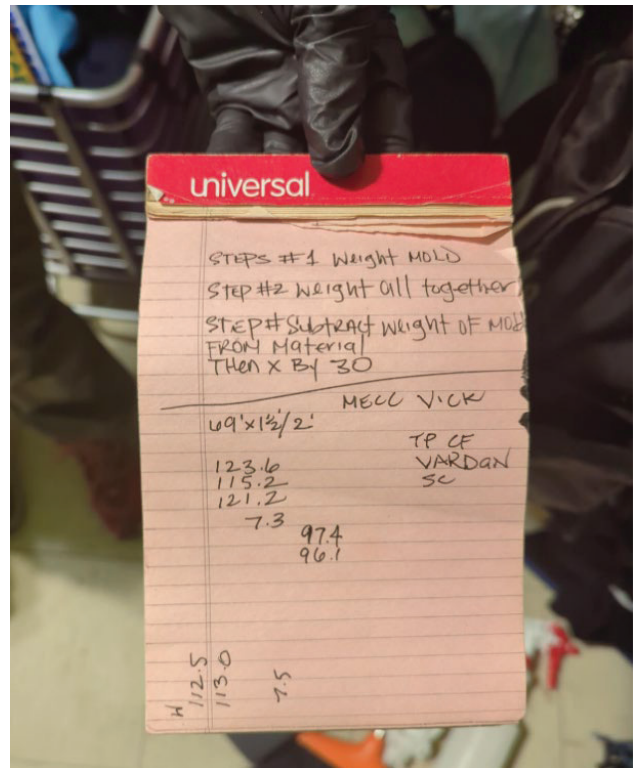 universal
STEPS #1 Weight MOLD
STEP #2 Weight all together
STEP # Subtract weight OF MOLD
FROM Material
THEN X By 30
MECC VICK
69'x1½/2'
TP CF
123.6
VARDAN
115.2
SC
121.2
7.3
97.4
96.1
H 112.5
113.0
7.5